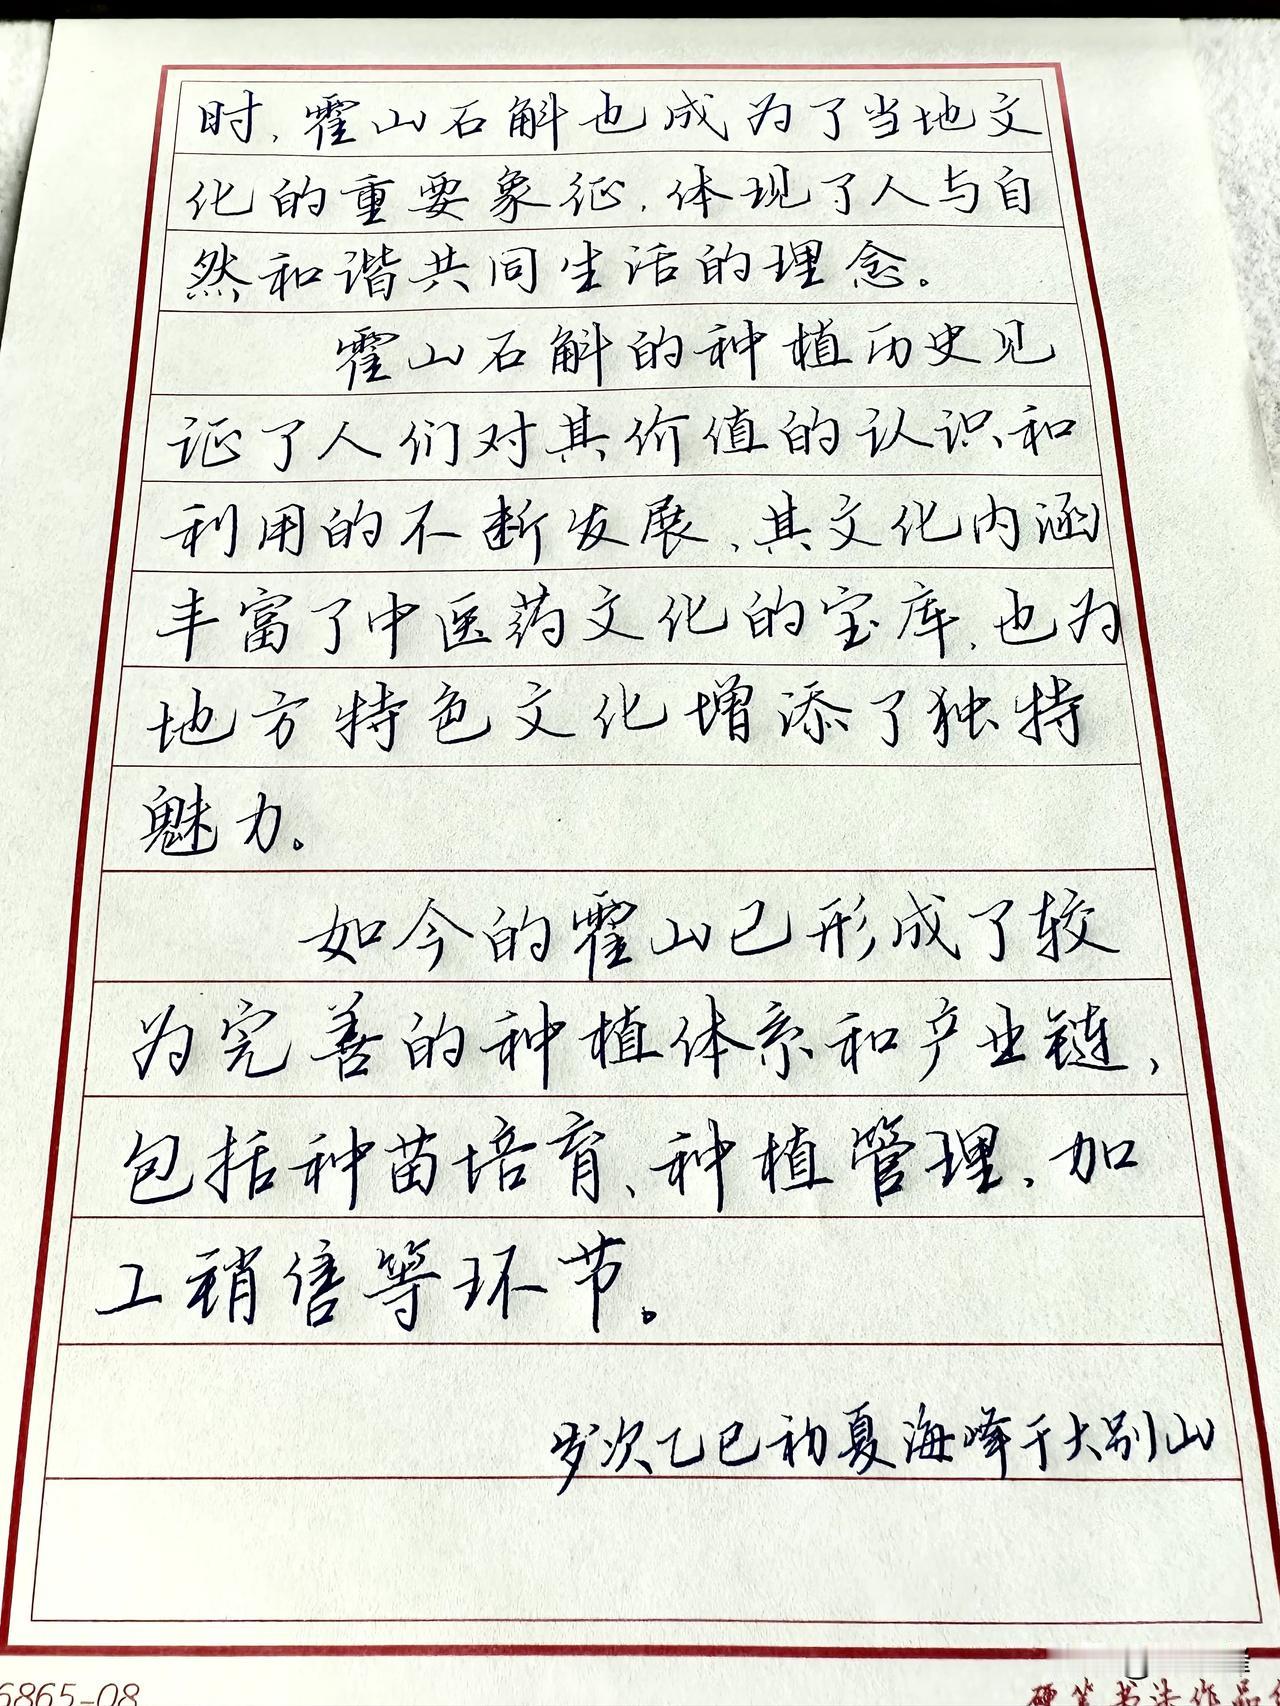 时，霍山石斛也成为了当地文
化的重要象征，体现了人与自
然和谐共同生活的理念。
霍山石斛的种植历史见
证了人们对其价值的认识和
利用的不断发展，其文化内涵
丰富了中医药文化的宝库，也为
地方特色文化增添了独特
魅力。
如今的霍山已形成了较
为完善的种植体系和产业链，
包括种苗培育、种植管理、加
工销售等环节。
岁次乙巳初夏海峰于大别山
6865-08
硬笔书法作品